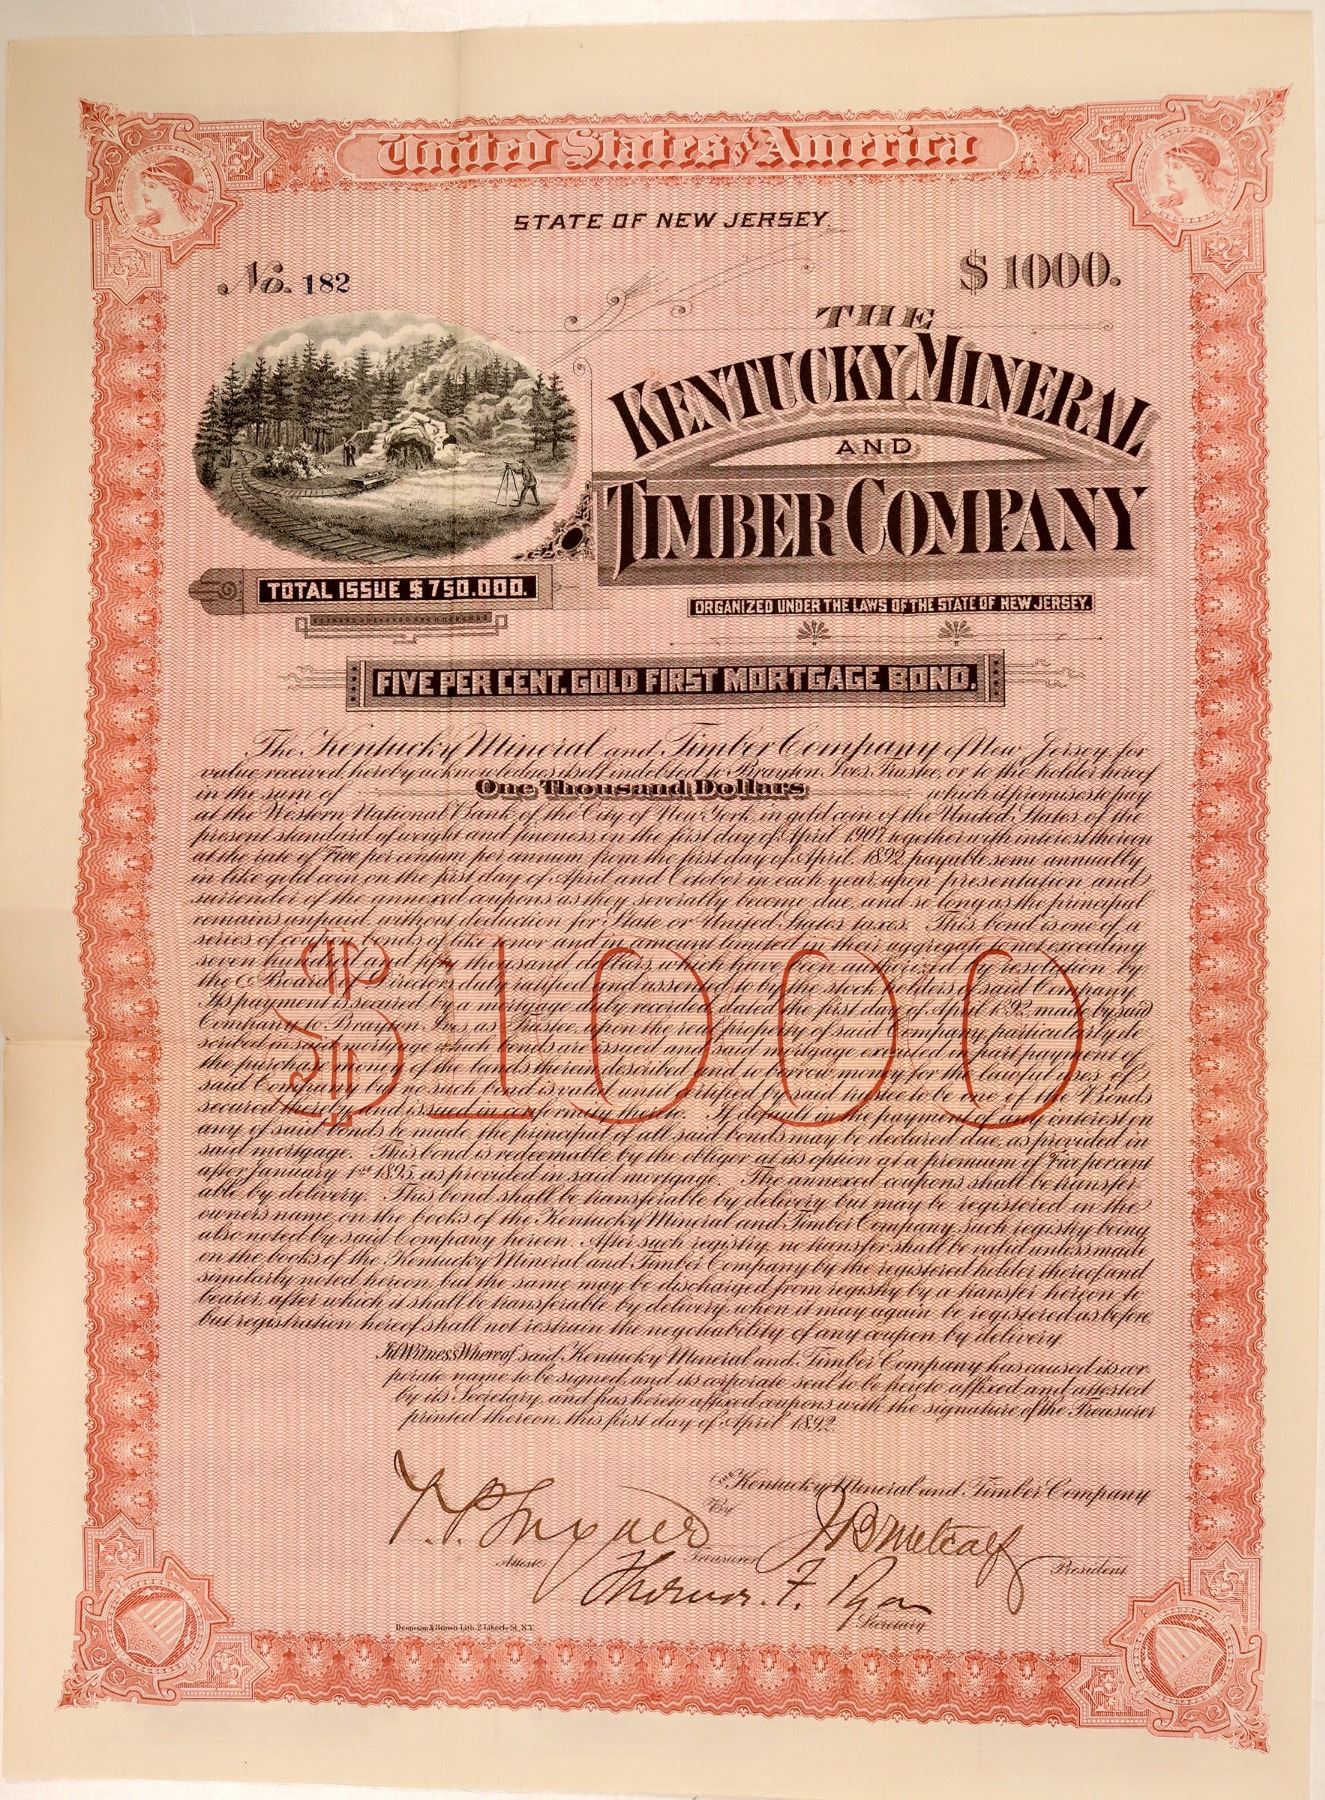 United States of America
STATE OF NEW JERSEY
No. 182
$1000.
THE
KENTUCKY MINERAL
AND
TIMBER COMPANY
TOTAL ISSUE $750,000.
ORGANIZED UNDER THE LAWS OF THE STATE OF NEW JERSEY.
FIVE PER CENT. GOLD FIRST MORTGAGE BOND.
The Kentucky Mineral and Timber Company of New Jersey, for
value received, hereby acknowledges itself indebted to Brayton Ives, Trustee, or to the holder hereof
in the sum of One Thousand Dollars which it promises to pay
at the Western National Bank of the City of New York, in gold coin of the United States of the
present standard of weight and fineness on the first day of April 1907, together with interest thereon
at the rate of Five per centum per annum from the first day of April, 1892, payable semi annually
in like gold coin on the first day of April and October in each year, upon presentation and
surrender of the annexed coupons as they severally become due, and so long as the principal
remains unpaid, without deduction for State or United States taxes. This bond is one of a
series of coupon bonds of like tenor and in amount limited in their aggregate to not exceeding
seven hundred and fifty thousand dollars, which have been authorized by resolution by
the Board of Directors duly ratified and assented to by the stock holders of said Company.
Its payment is secured by a mortgage duly recorded, dated the first day of April 1892, made by said
Company to Brayton Ives, as Trustee, upon the real property of said Company, particularly de
scribed in said mortgage which bonds are issued and said mortgage executed in part payment of
the purchase money of the lands therein described and to borrow money for the lawful uses of
said Company but no such bond is valid until certified by said trustee to be one of the Bonds
secured thereby and issued in conformity thereto. If default in the payment of any interest on
any of said bonds be made, the principal of all said bonds may be declared due, as provided in
said mortgage. This bond is redeemable by the obligor at its option at a premium of Five per cent
after January 1st 1895, as provided in said mortgage. The annexed coupons shall be transfer
able by delivery. This bond shall be transferable by delivery but may be registered in the
owners name, on the books of the Kentucky Mineral and Timber Company, such registry being
also noted by said Company hereon. After such registry, no transfer shall be valid unless made
on the books of the Kentucky Mineral and Timber Company by the registered holder thereof and
similarly noted hereon, but the same may be discharged from registry by a transfer hereon to
bearer, after which it shall be transferable by delivery, when it may again be registered as before,
but registration hereof shall not restrain the negotiability of any coupon by delivery.
$1000
In Witness Whereof said Kentucky Mineral and Timber Company has caused its cor
porate name to be signed, and its corporate seal to be hereto affixed, and attested
by its Secretary, and has hereto affixed coupons with the signature of the Treasurer
printed thereon, this first day of April 1892.
The Kentucky Mineral and Timber Company
By J B Metcalf
President
Treasurer
Attest
Thomas F. Ryan
Secretary
Dennison & Brown Lith. 2 Liberty St. N.Y.